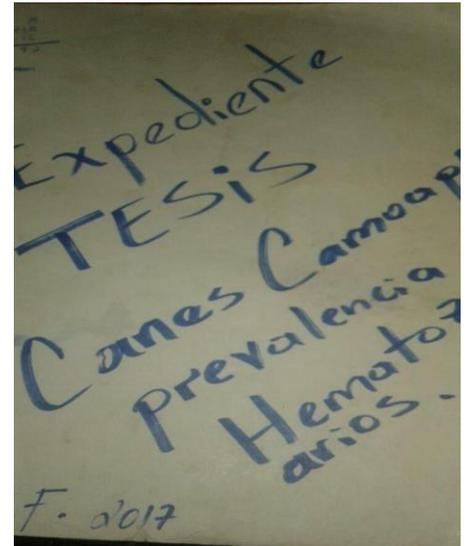 Expediente
TESis
Canes Camoap
prevalencia
Hematoz
arios.
F. 2017